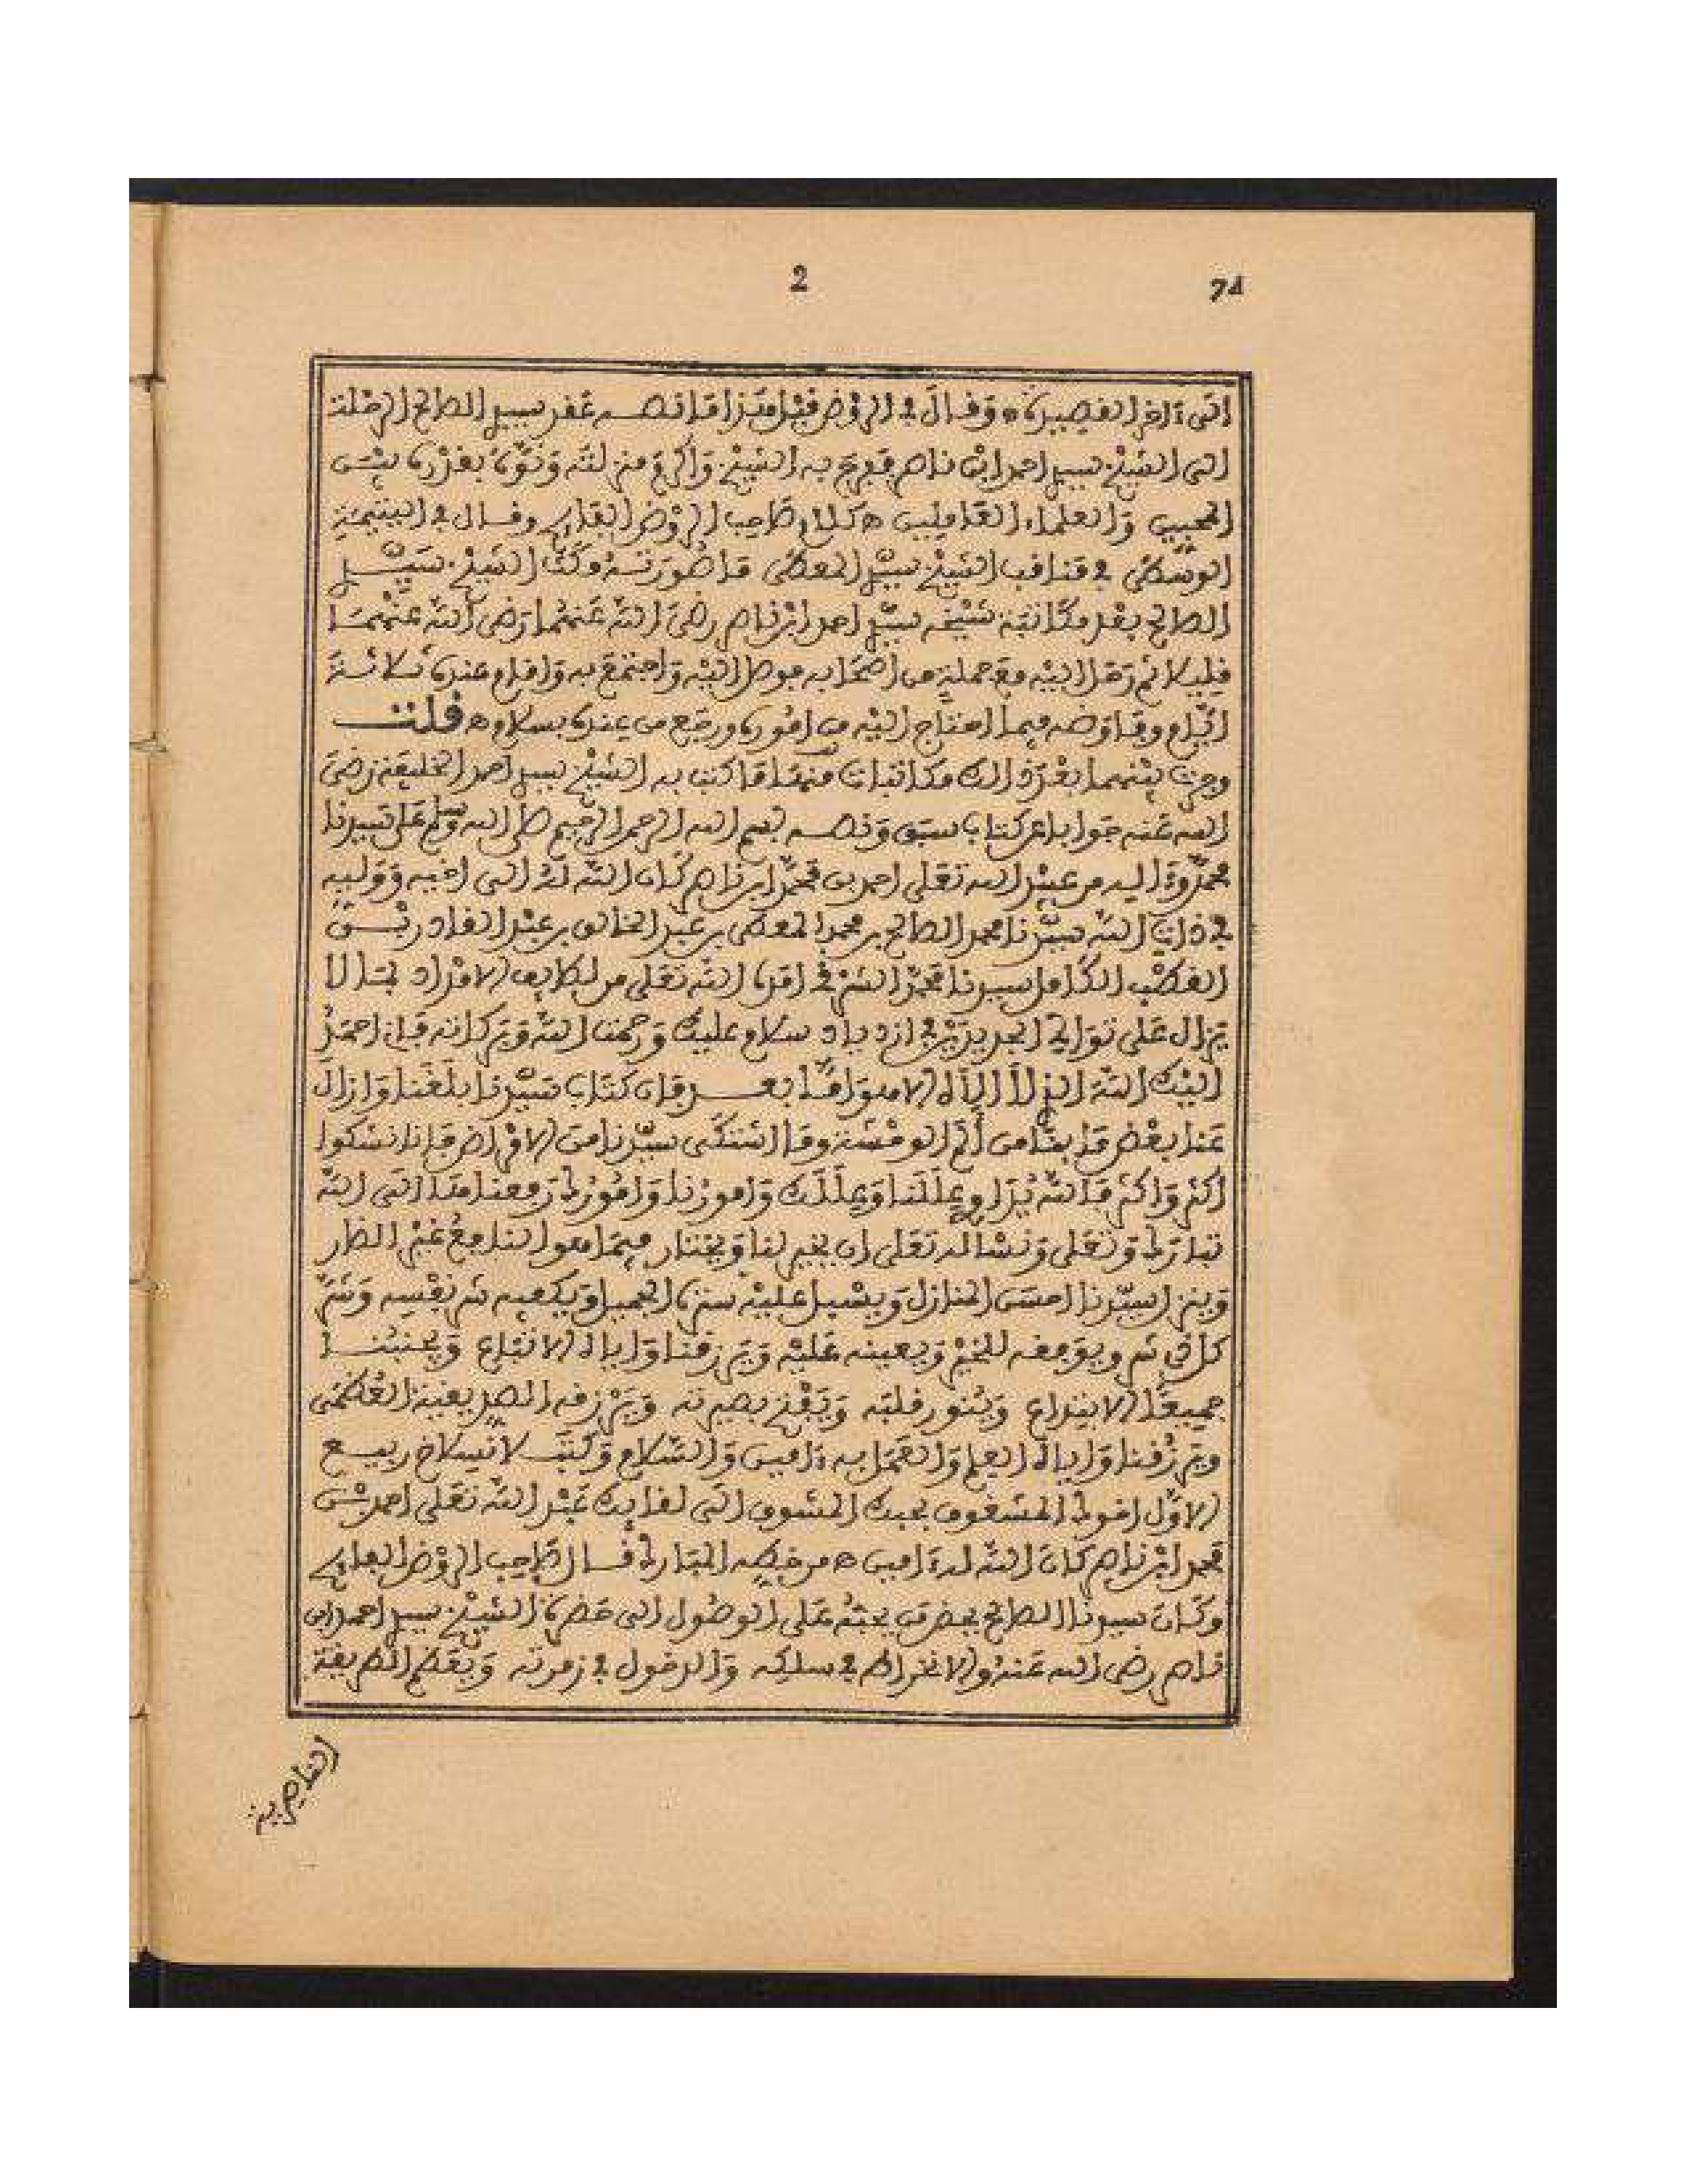 2
74
الى ءاخر القصيدة ه وقال في الروض قبل هذا ما نصه عقد سيدي الصالح الرحلة
الى الشيخ سيدي احمد ابن ناصر ففرح به الشيخ واكرم منزلته ونوه بقدره بين
المحبين والعلماء العاملين ه كلام صاحب الروض وقال في اليتيمة
الوسطى في مناقب الشيخ سيدي المعطى ما صورته وكان الشيخ سيدي
الصالح بعد مكاتبة شيخه سيدي احمد ابن ناصر رضي الله عنهما رضي الله عنهما
قليلا ثم رحل اليه مع جملة من اصحابه فوصل اليه واجتمع به واقام عنده ثلاثة
ايام وفاوضه فيما احتاج اليه من اموره ورجع من عنده بسلام ه قلت
وجرت بينهما بعد ذلك مكاتبات منها ما كتب به الشيخ سيدي احمد الخليفة رضي
الله عنه جوابا عن كتاب سبق ونصه بسم الله الرحمن الرحيم صلى الله وسلم على سيدنا
محمد وءاله من عبد الله تعلى احمد بن محمد ابن ناصر كان الله له الى اخيه ووليه
في ذات الله سيدنا محمد الصالح بن محمد المعطى بن عبد الخالق بن عبد القادر بن
القطب الكامل سيدنا محمد الشرفي امده الله تعلى من لطايف الامداد بما لا
يزال على توالي الجديدين في ازدياد سلام عليك ورحمت الله وبركاته فإني احمد
اليك الله الذي لا إلاه الا هو اما بعد فان كتاب سيدنا بلغنا وازال
عنا بعض ما بنا من ألم الوحشة وما اشتكى سيدنا من الامراض فإنا نشكوا
اكثر واكثر فالله يداوي عللنا وعللك وامورنا وامورك رفعناها الى الله
تبارك وتعلى ونسأله تعلى ان يخير لنا ويختار فيما هو لنا نفع غير الضار
وينزل سيدنا احسن المنازل ويسبل عليه ستره الجميل ويكفيه شر نفسه وشر
كل ذي شر ويوفقه للخير ويعينه عليه ويرزقنا واياه الاتباع ويجنبنا
جميعا الابتداع وينور قلبه ويفتح بصيرته ويرزقه الصديقية العظمى
ويرزقنا واياه العلم والعمل به ءامين والسلام وكتب لانسلاخ ربيع
الاول اخوك المشغوف بحبك المشوق الى لقايك عبد الله تعلى احمد بن
محمد ابن ناصر كان الله له ءامين ه من خطه المبارك قال صاحب الروض
وكان سيدنا الصالح يحضرني يحثه على الوصول الى حضرة الشيخ سيدي احمد ابن
ناصر رضي الله عنه والانخراط في سلكه والدخول في زمرته وبعظم الطريقة
الناصرية